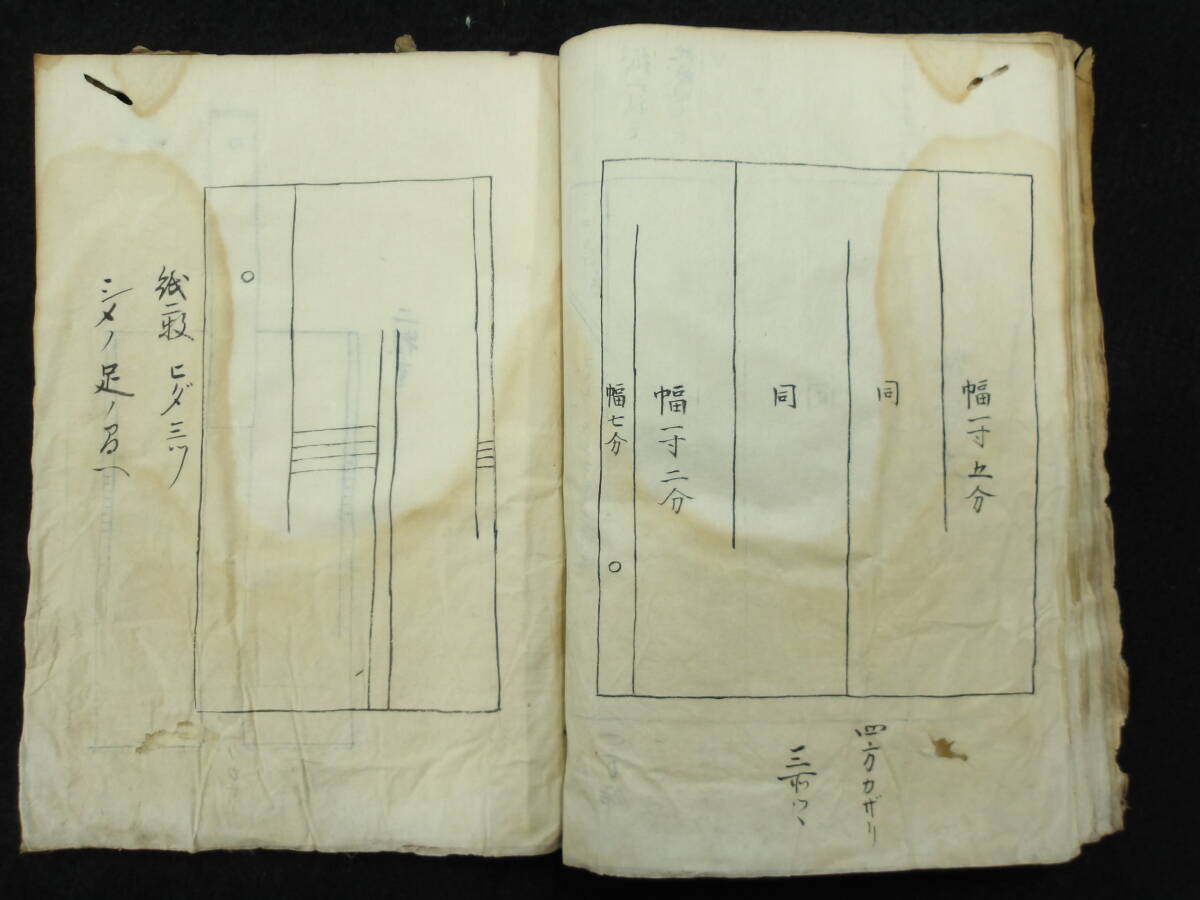 幅一寸五分
同
同
幅一寸二分
幅七分
四方カザリ
三
紙一枚 ヒダ三ツ
シメノ足ノ